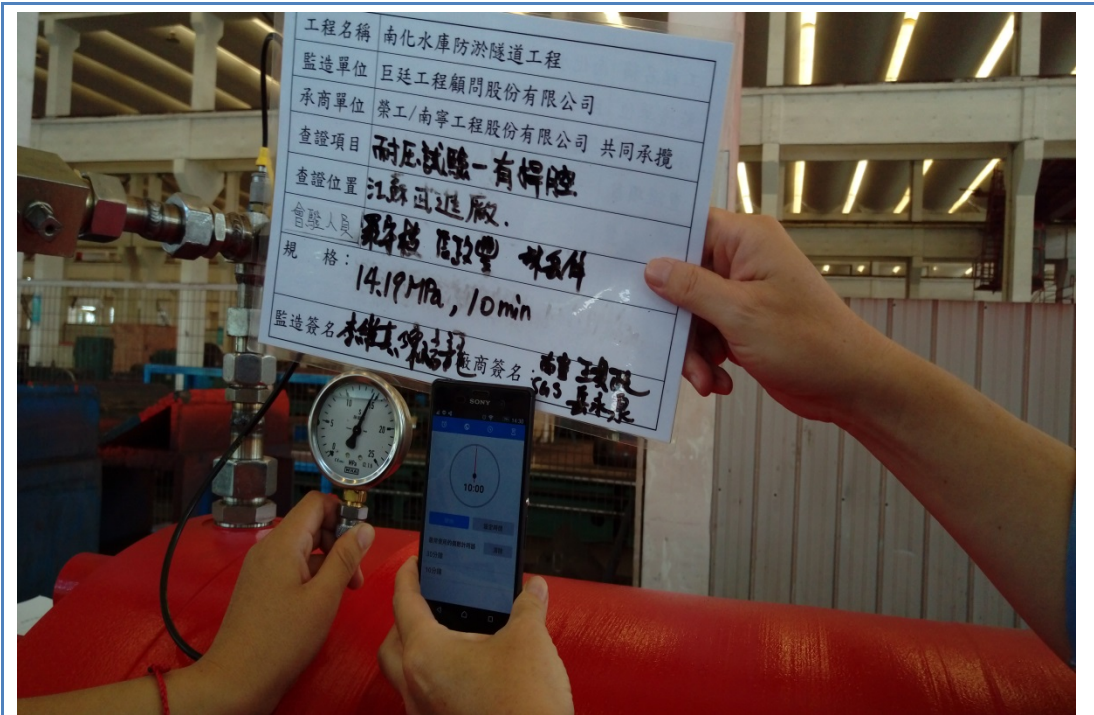 工程名稱 南化水庫防淤隧道工程
監造單位 巨廷工程顧問股份有限公司
承商單位 榮工/南寧工程股份有限公司 共同承攬
查證項目 耐压試驗一有桿腔
查證位置 江蘇武進廠.
會驗人員
規 格：
14.19 MPa, 10 min
監造簽名 廠商簽名：
SGS
SONY
10:00
0
5
10
15
20
25
MPa
WIKA